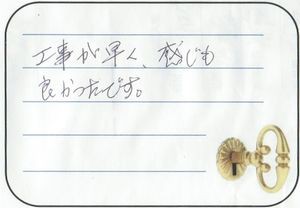 工事が早く、感じも
良かったです。